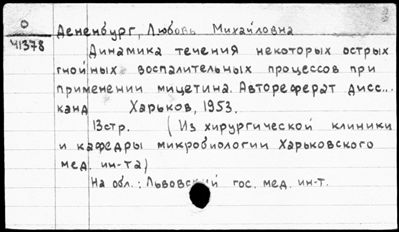 О
41378
Дененбург, Любовь Михайловна
Динамика течения некоторых острых
гнойных воспалительных процессов при
применении мицетина. Автореферат дисс...
канд Харьков, 1953.
13стр. (Из хирургической клиники
и кафедры микробиологии Харьковского
мед. ин-та)
На обл.: Львовский гос. мед. ин-т.